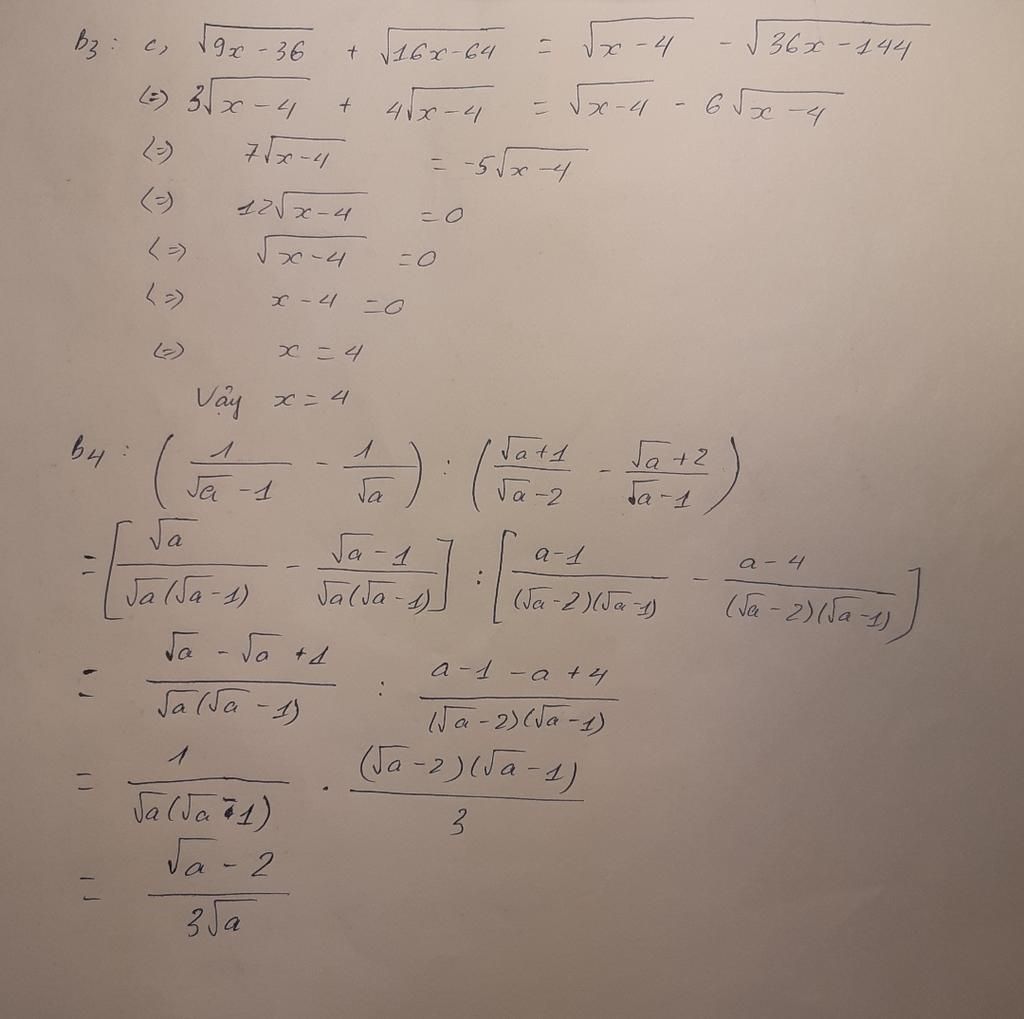 b3: c, √(9x-36) + √(16x-64) = √(x-4) - √(36x-144)
(=) 3√(x-4) + 4√(x-4) = √(x-4) - 6√(x-4)
(=) 7√(x-4) = -5√(x-4)
(=) 12√(x-4) = 0
(=) √(x-4) = 0
(=) x-4 = 0
(=) x = 4
Vậy x = 4
b4: (1/(√a-1) - 1/√a) : ((√a+1)/(√a-2) - (√a+2)/(√a-1))
= [√a/(√a(√a-1)) - (√a-1)/(√a(√a-1))] : [(a-1)/((√a-2)(√a-1)) - (a-4)/((√a-2)(√a-1))]
= (√a-√a+1)/(√a(√a-1)) : (a-1-a+4)/((√a-2)(√a-1))
= 1/(√a(√a-1)) . ((√a-2)(√a-1))/3
= (√a-2)/(3√a)